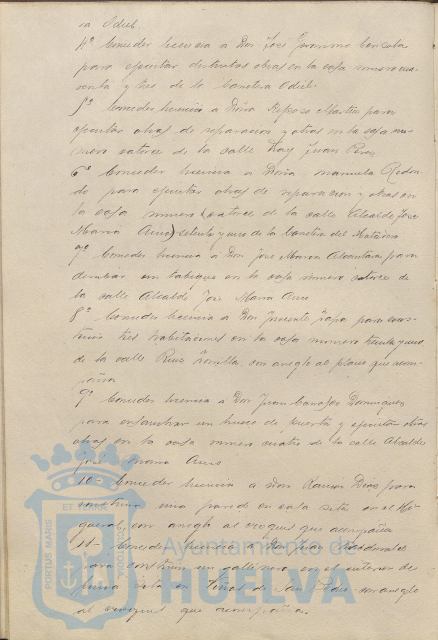 ra Odiel.
4º Conceder licencia a Don José Jeronimo
para ejecutar distintas obras en la casa numero cua-
renta y tres de la Carretera Odiel.
5º Conceder licencia a Doña Reposo Martin para
ejecutar obras de reparacion y otras en la casa nu-
mero catorce de la calle Fray Juan Perez
6º Conceder licencia a Doña Manuela Redon-
do para ejecutar obras de reparacion y otras en
la casa numero (catorce de la calle Alcalde Jose
Maria Amo) setenta y uno de la Carretera del Matadero
7º Conceder licencia a Don Jose Maria Alcantara para
derribar un tabique en la casa numero catorce de
la calle Alcalde Jose Maria Amo
8º Conceder licencia a Don Vicente para cons-
truir tres habitaciones en la casa numero treinta y uno
de la calle Ruiz Zorrilla, con arreglo al plano que acom-
paña
9º Conceder licencia a Don Juan Dominguez
para ensanchar un hueco de puerta y ejecutar otras
obras en la casa numero cuatro de la calle Alcalde
José Maria Amo
10- Conceder licencia a Don Ramon Diaz para
construir una pared en casa sita en el Hi-
gueral, con arreglo al croquis que acompaña
11- Conceder licencia a Don Juan
para construir un gallinero en el interior de
finca sita en de San Pedro con arreglo
al croquis que acompaña.
PORTUS MARIS ET TERRÆ CUSTODIA
Ayuntamiento de
HUELVA